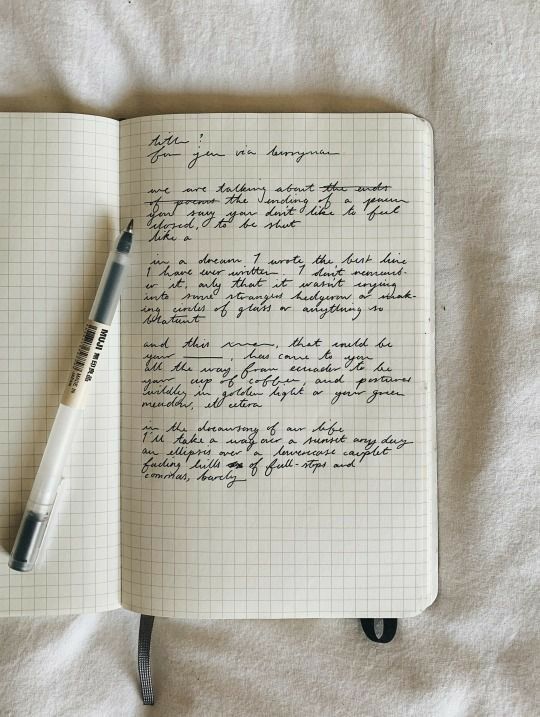 title ?
for jen via
we are talking about the ends
of poems the ending of a poem
you say you don't like to feel
closed, to be shut
like a
in a dream I wrote the best line
I have ever written. I don't rememb-
er it, only that it wasn't crying
into some strangers hedgerow or mak-
ing circles of glass or anything so
blatant
and this, that could be
your ____, has come to you
all the way from ecuador to be
your cup of coffee, and pastures
wildly in golden light or your green
meadow, et cetera
in the of our life
I'll take a way over a sunset any day
an ellipses over a lowercase
fading hills of full-stops and
commas, barely
MUJI
無印良品